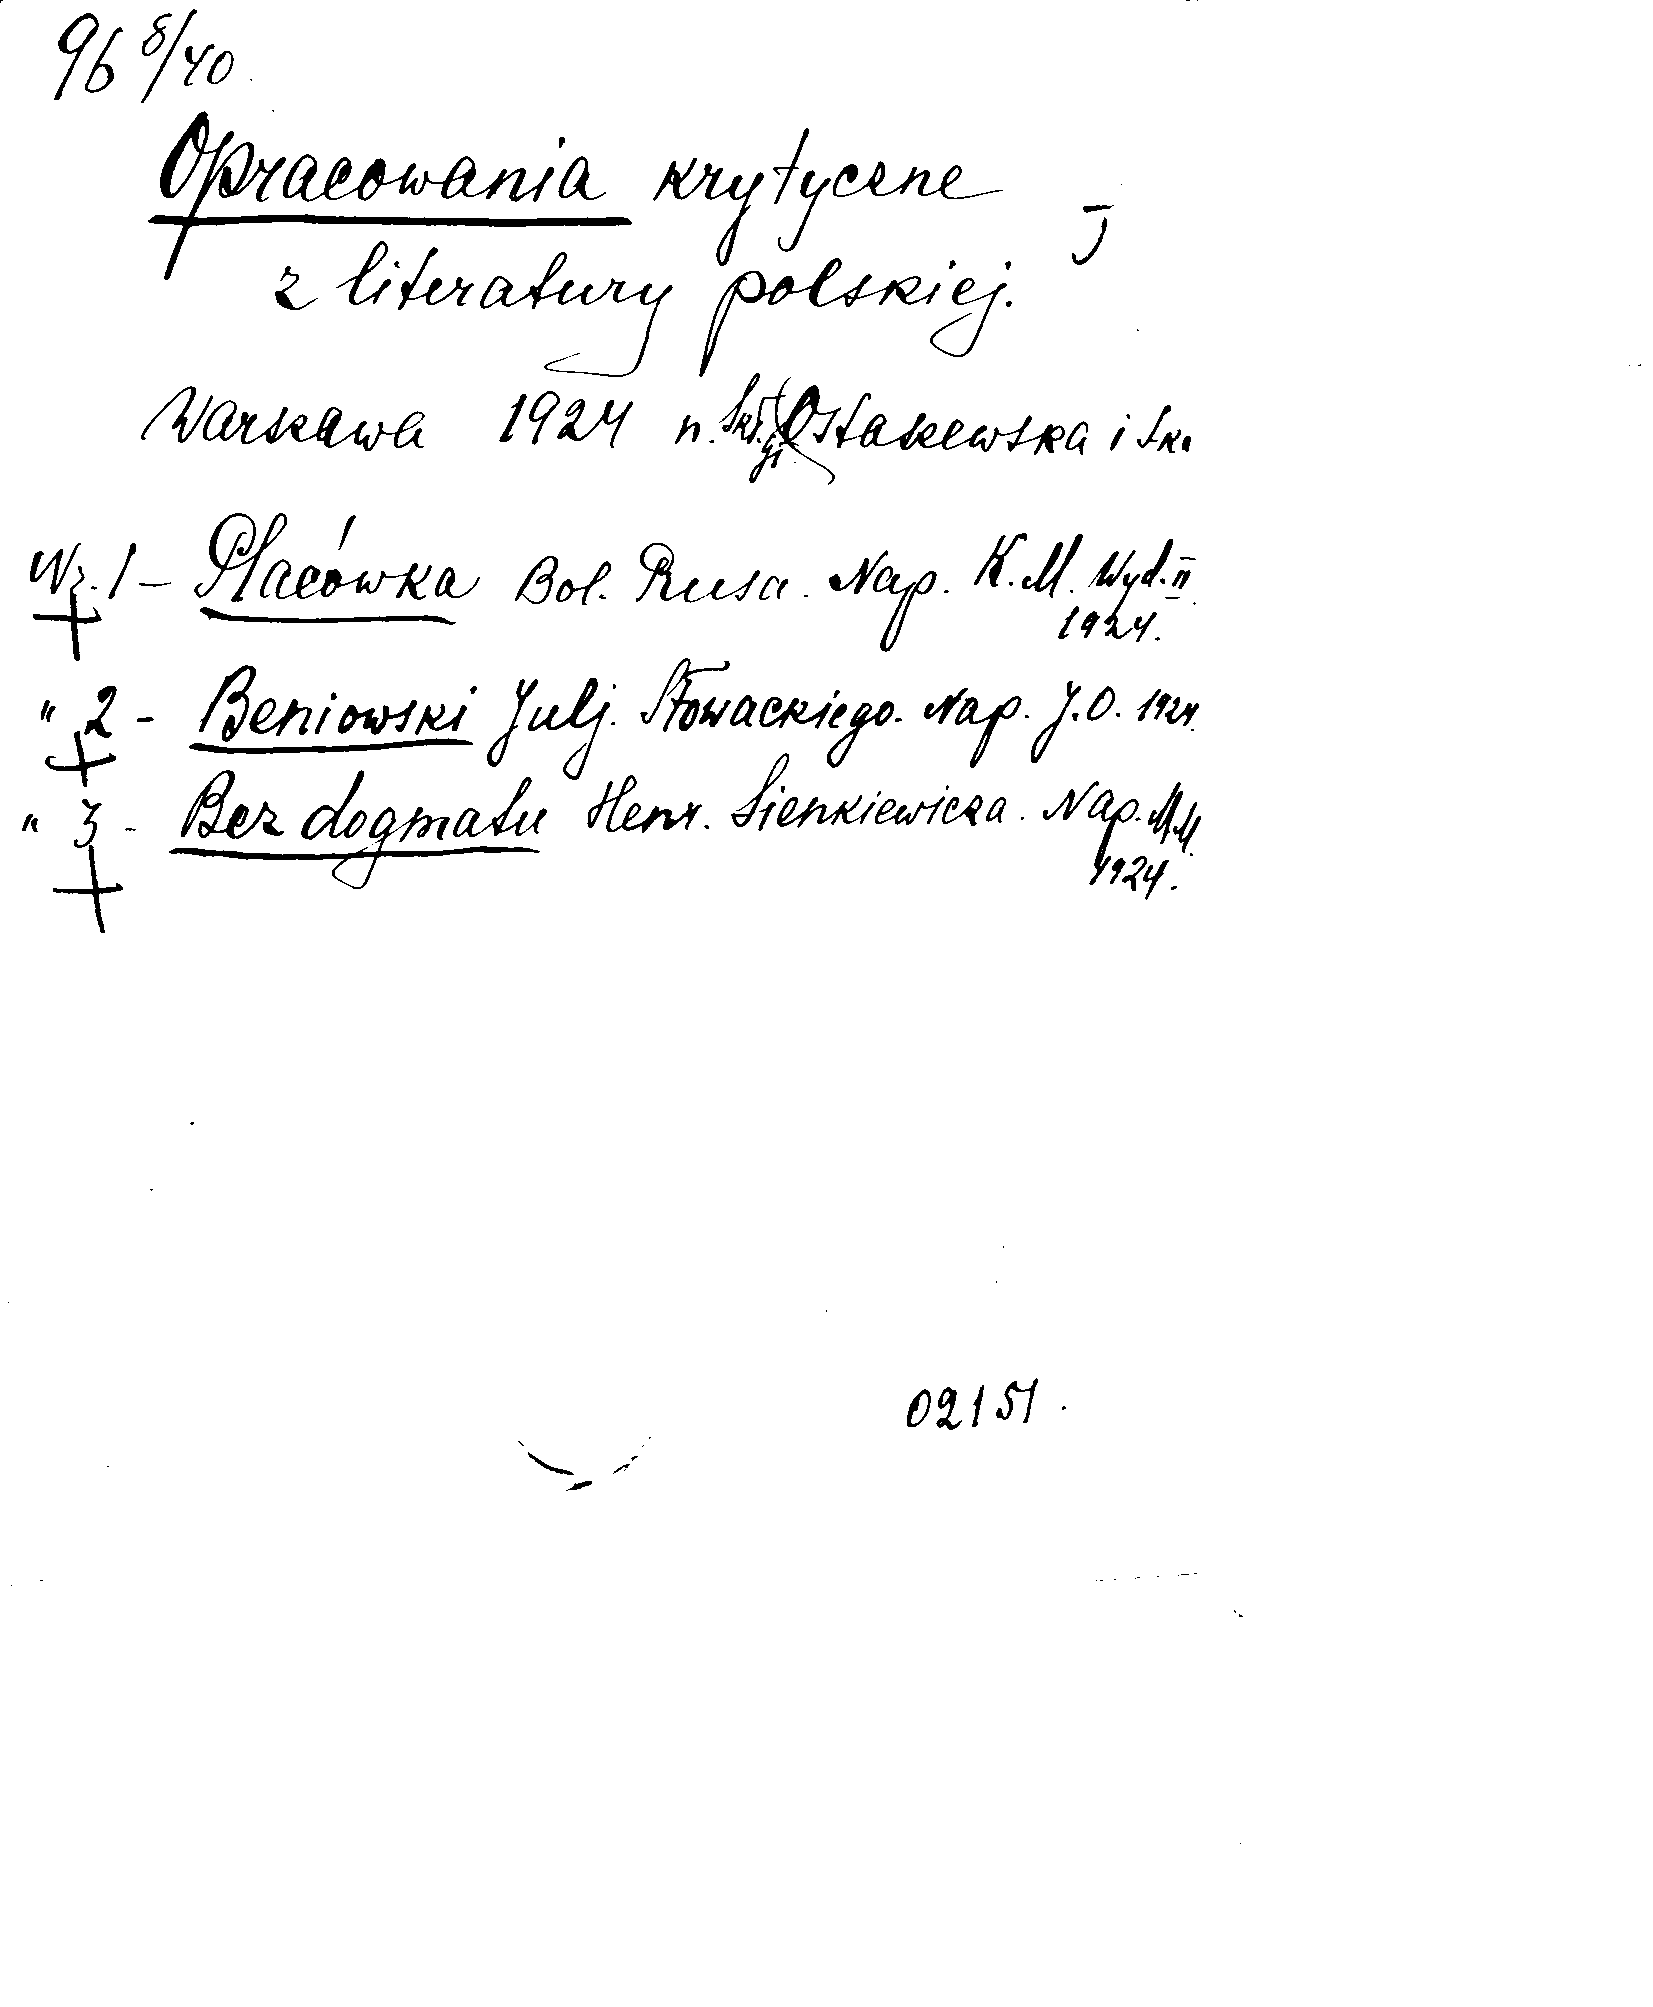 96 8/40
Opracowania krytyczne
z literatury polskiej.
Warszawa 1924 n. Skł. gł. Ostaszewska i Sk.
Nr. 1 - Placówka Bol. Prusa. Nap. K. M. Wyd. II
1924.
" 2 - Beniowski Julj. Słowackiego. Nap. J. O. 1924.
" 3 - Bez dogmatu Henr. Sienkiewicza. Nap. M. M.
1924.
02151.